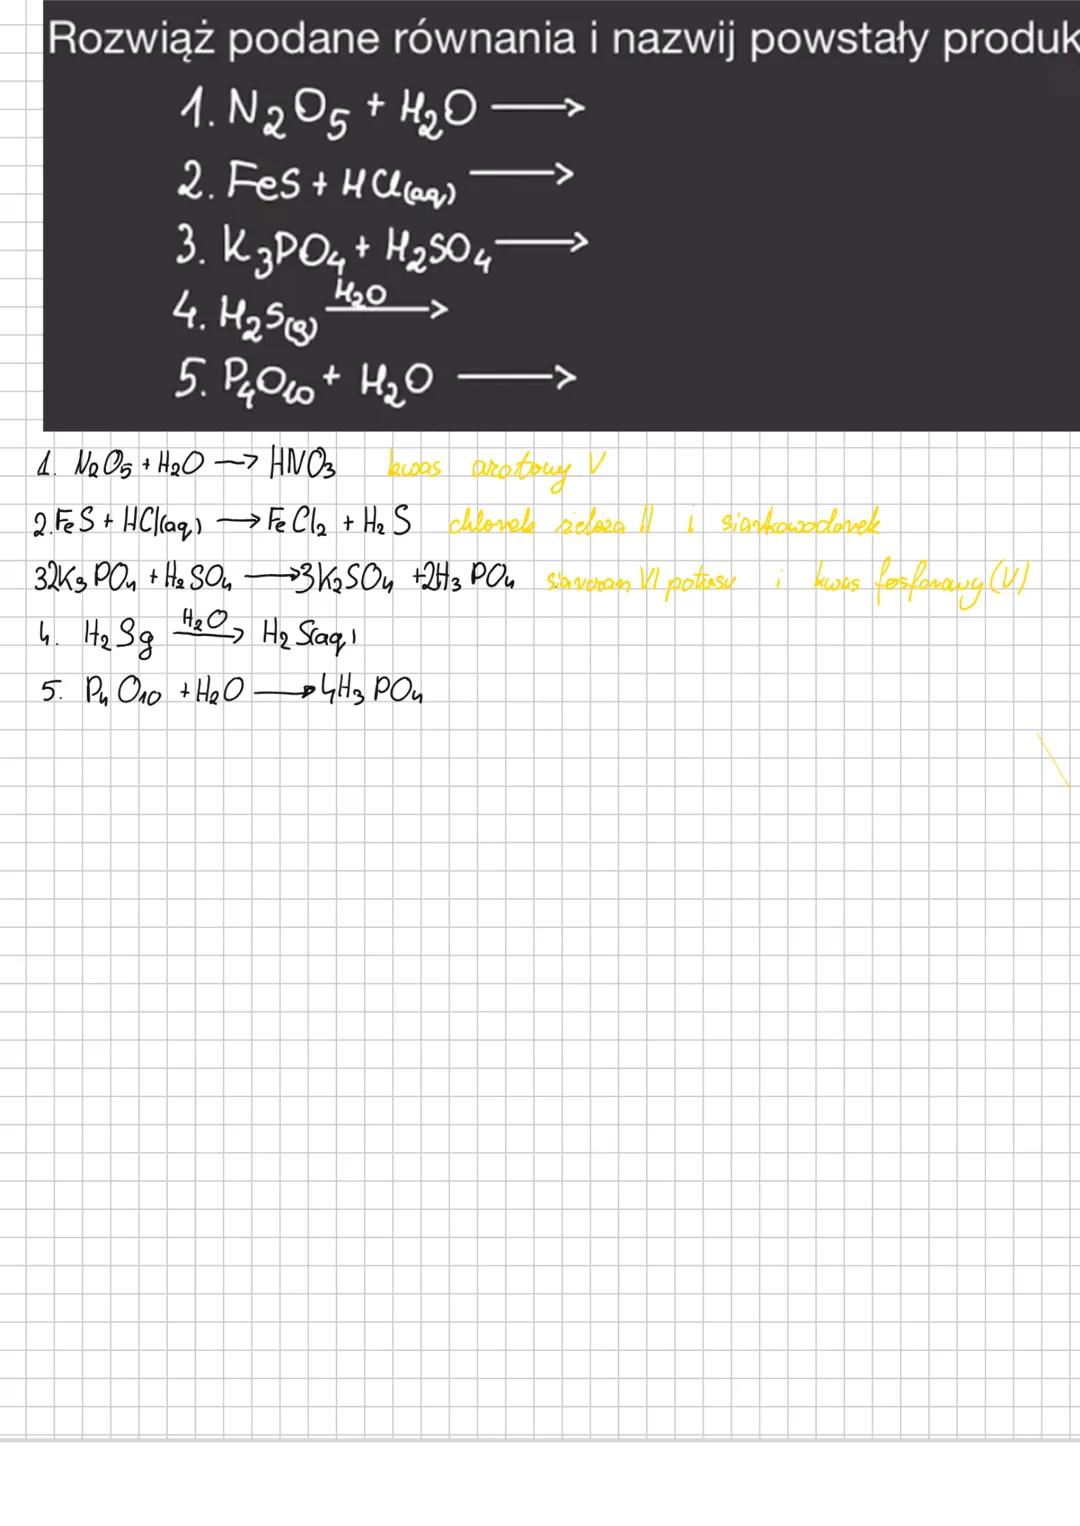 Rozwiąż podane równania i nazwij powstały produk
1. N₂O₅ + H₂O ⟶
2. FeS + HCl(aq) ⟶
3. K₃PO₄ + H₂SO₄ ⟶
4. H₂S(g) H₂O ⟶
5. P₄O₁₀ + H₂O ⟶
1. N₂O₅ + H₂O → HNO₃ kwas azotowy V
2. FeS + HCl(aq) → FeCl₂ + H₂S chlorek żelaza II i siarkowodorek
3 2K₃PO₄ + H₂SO₄ → 3K₂SO₄ + 2H₃PO₄ siarczan VI potasu i kwas fosforowy (V)
4. H₂Sg H₂O → H₂S(aq)
5. P₄O₁₀ + H₂O → 4H₃PO₄